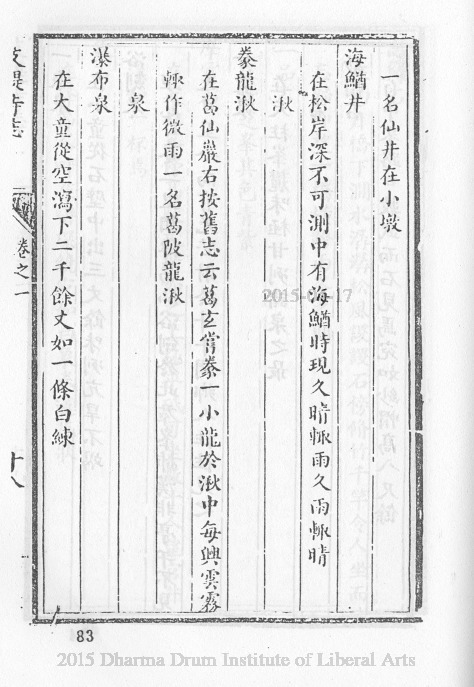 一名仙井在小墩
海鰌井
在松岸深不可測中有海鰌時現久晴輙雨久雨輙晴
湫
豢龍湫
在葛仙巖右按舊志云葛玄嘗豢一小龍於湫中每興雲霧
輙作微雨一名葛陂龍湫
泉
瀑布泉
在大童從空瀉下二千餘丈如一條白練
支提寺志
卷之一
十八
83
2015 Dharma Drum Institute of Liberal Arts